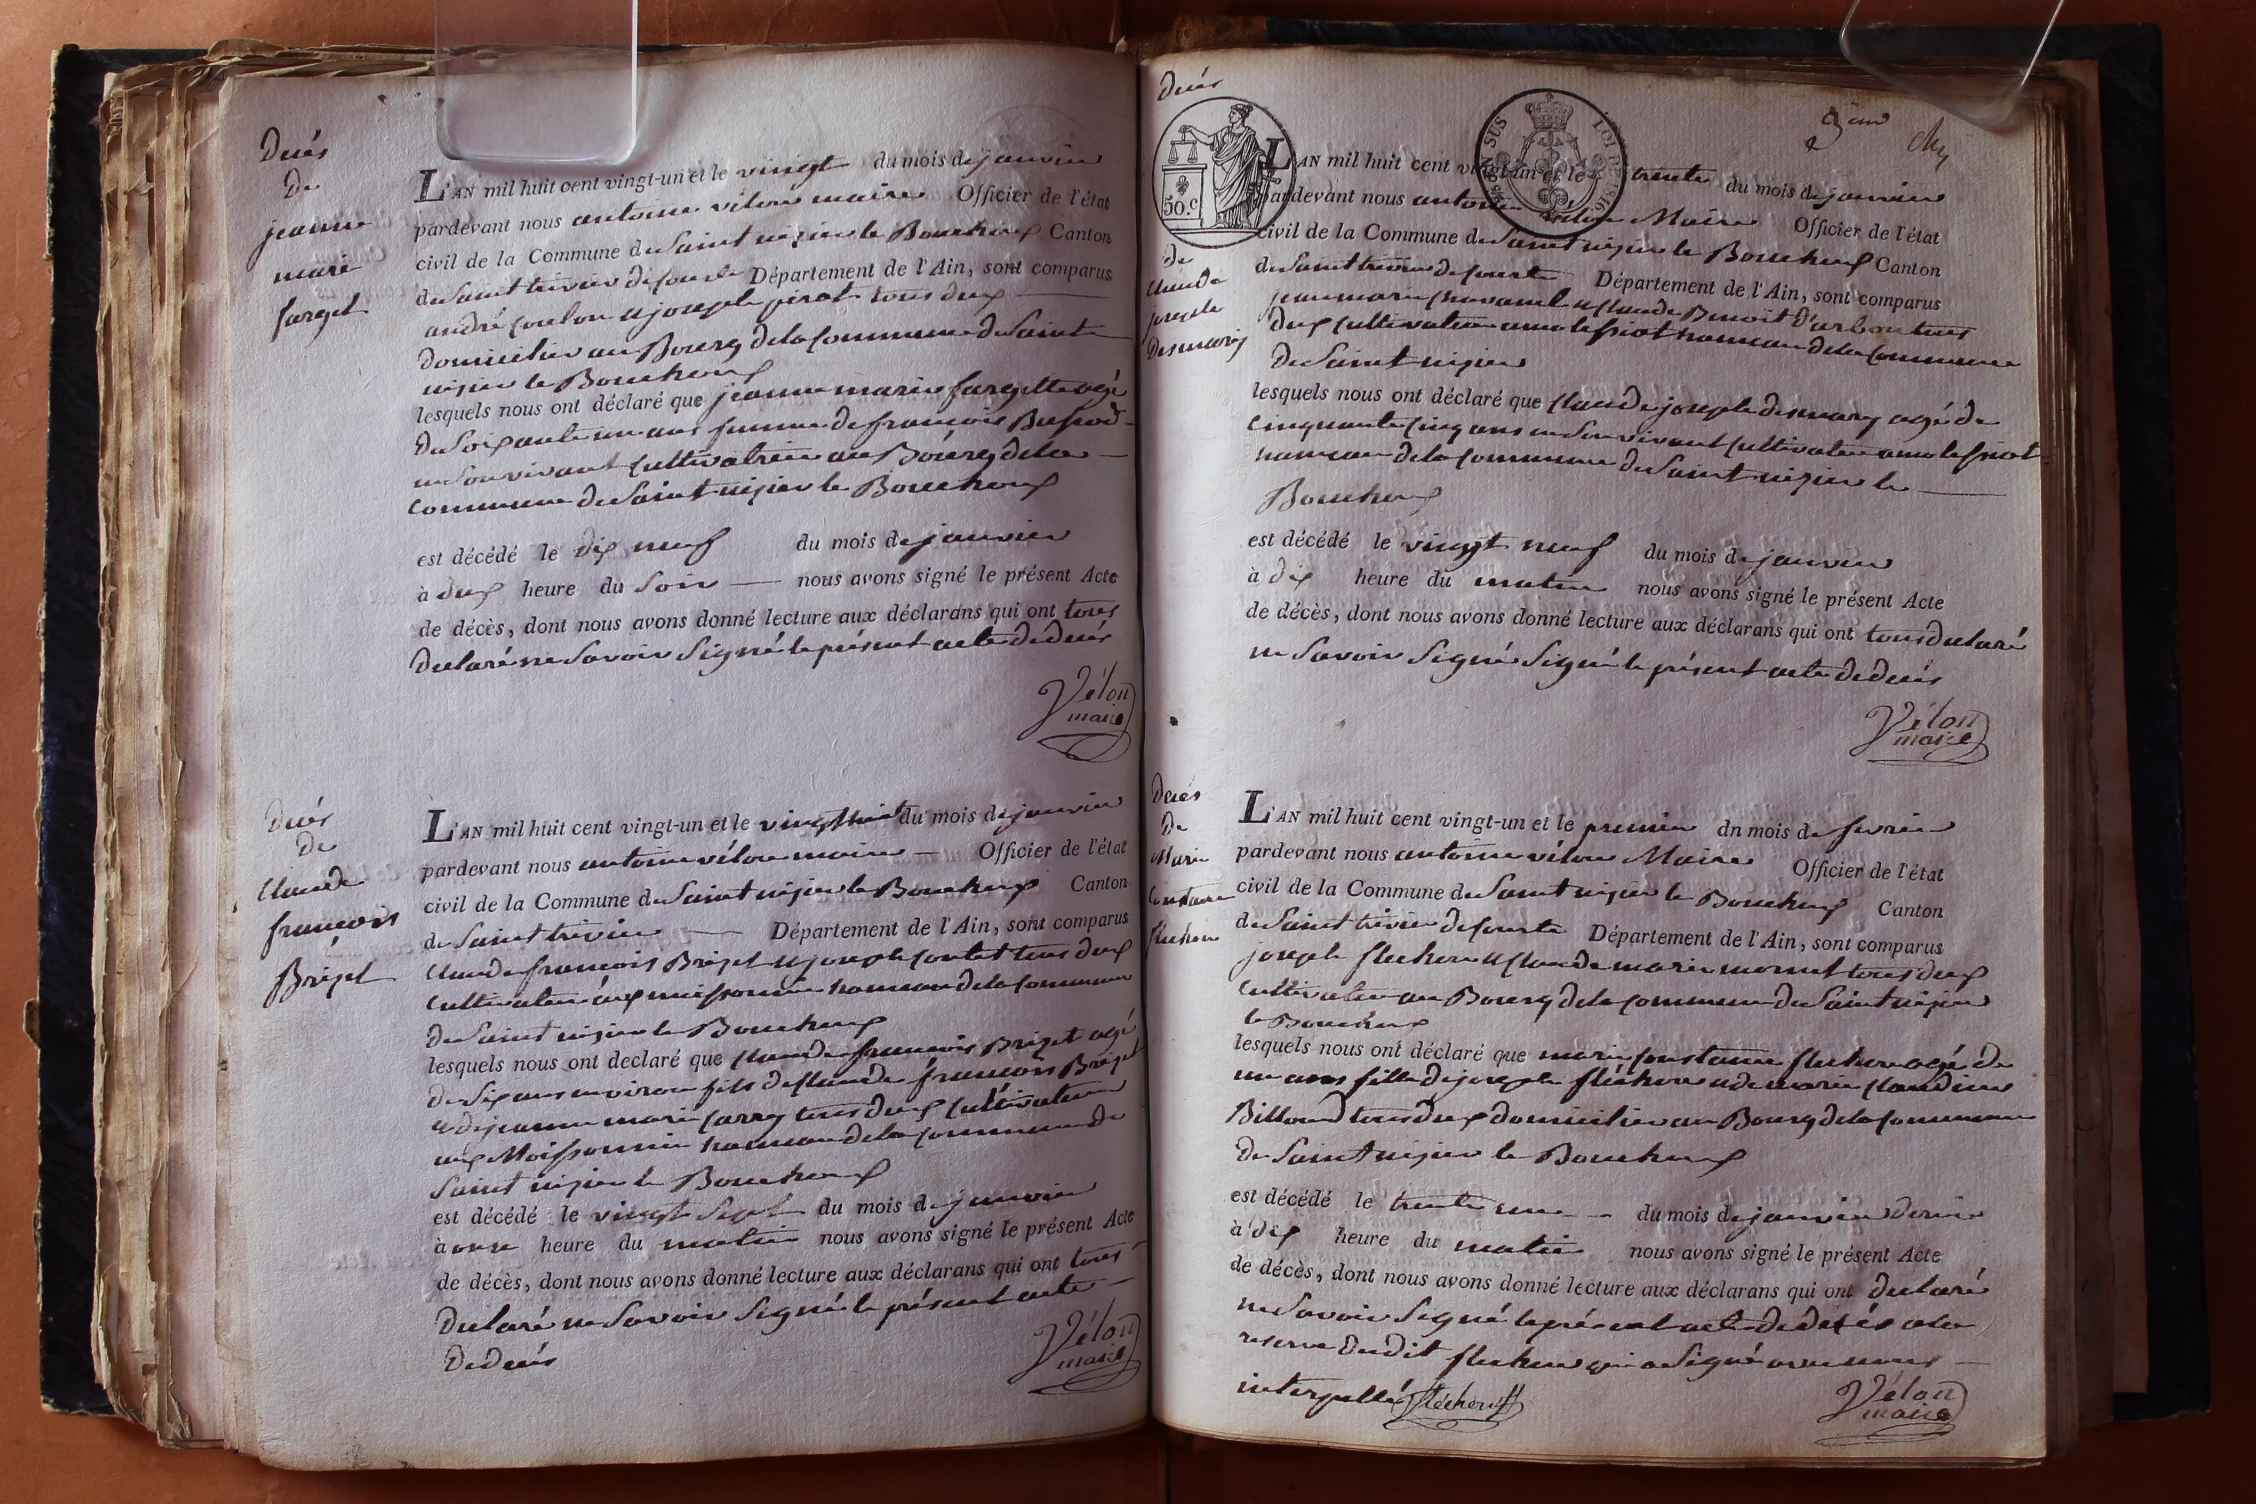 Décés
de
jeanne
marie
farget
L'AN mil huit cent vingt-un et le vingt du mois de janvier
pardevant nous antoine vélon maire Officier de l'état
civil de la Commune de Saint nizier le Bouchoux Canton
de Saint trivier de courte Département de l'Ain, sont comparus
andré coulon & joseph perot tous deux
domiciliés au Bourg de la commune de Saint
nizier le Bouchoux
lesquels nous ont déclaré que jeanne marie fargette agé
de Soixante un ans femme de françois Bufod
en Son vivant Cultivatrice au Bourg de la
commune de Saint nizier le Bouchoux
est décédé le dix neuf du mois de janvier
à deux heure du Soir nous avons signé le présent Acte
de décès, dont nous avons donné lecture aux déclarans qui ont tous
declaré ne Savoir Signé le présent acte de décés
Vélon
maire
Décés
de
Claude
françois
Brizet
L'AN mil huit cent vingt-un et le vingt huit du mois de janvier
pardevant nous antoine vélon maire Officier de l'état
civil de la Commune de Saint nizier le Bouchoux Canton
de Saint trivier Département de l'Ain, sont comparus
Claude françois Brizet & joseph contet tous deux
Cultivateur aux moissonnier hameau de la Commune
de Saint nizier le Bouchoux
lesquels nous ont declaré que Claude françois Brizet agé
de Six ans environ fils de Claude françois Brizet
& de jeanne marie Carry tous deux Cultivateur
aux Moissonnier hameau de la Commune de
Saint nizier le Bouchoux
est décédé le vingt Sept du mois de janvier
à onze heure du matin nous avons signé le présent Acte
de décès, dont nous avons donné lecture aux déclarans qui ont tous
declaré ne Savoir Signé le présent acte
de décés
Vélon
maire
Décés
50.c
EN SUS LOI DE 1816
2ème
de
Claude
joseph
Desmaris
L'AN mil huit cent vingt-un et le trente du mois de janvier
pardevant nous antoine vélon Maire Officier de l'état
civil de la Commune de Saint nizier le Bouchoux Canton
de Saint trivier de courte Département de l'Ain, sont comparus
jean marie chavanel & Claude Benoit D'arbon tous
deux Cultivateur hameau de la Commune
de Saint nizier
lesquels nous ont déclaré que Claude joseph desmary agé de
cinquante cinq ans en Son vivant Cultivateur
hameau de la Commune de Saint nizier le
Bouchoux
est décédé le vingt neuf du mois de janvier
à dix heure du matin nous avons signé le présent Acte
de décès, dont nous avons donné lecture aux déclarans qui ont tous declaré
ne Savoir Signé Signé le présent acte de décés
Vélon
maire
Decés
de
Marie
Constance
flechon
L'AN mil huit cent vingt-un et le premier dn mois de fevrier
pardevant nous antoine vélon Maire Officier de l'état
civil de la Commune de Saint nizier le Bouchoux Canton
de Saint trivier de courte Département de l'Ain, sont comparus
joseph flechon & Claude marie mornet tous deux
Cultivateur au Bourg de la commune de Saint nizier
le Bouchoux
lesquels nous ont déclaré que marie constance flechon agé de
un ans fille de joseph fléchon & de marie Claudine
Billoud tous deux domiciliés au Bourg de la Commune
de Saint nizier le Bouchoux
est décédé le trente une du mois de janvier dernier
à dix heure du matin nous avons signé le présent Acte
de décès, dont nous avons donné lecture aux déclarans qui ont declaré
ne Savoir Signé le présent acte de decés a la
reserve dudit flechon qui a Signé avec nous
interpellé fléchon
Vélon
maire